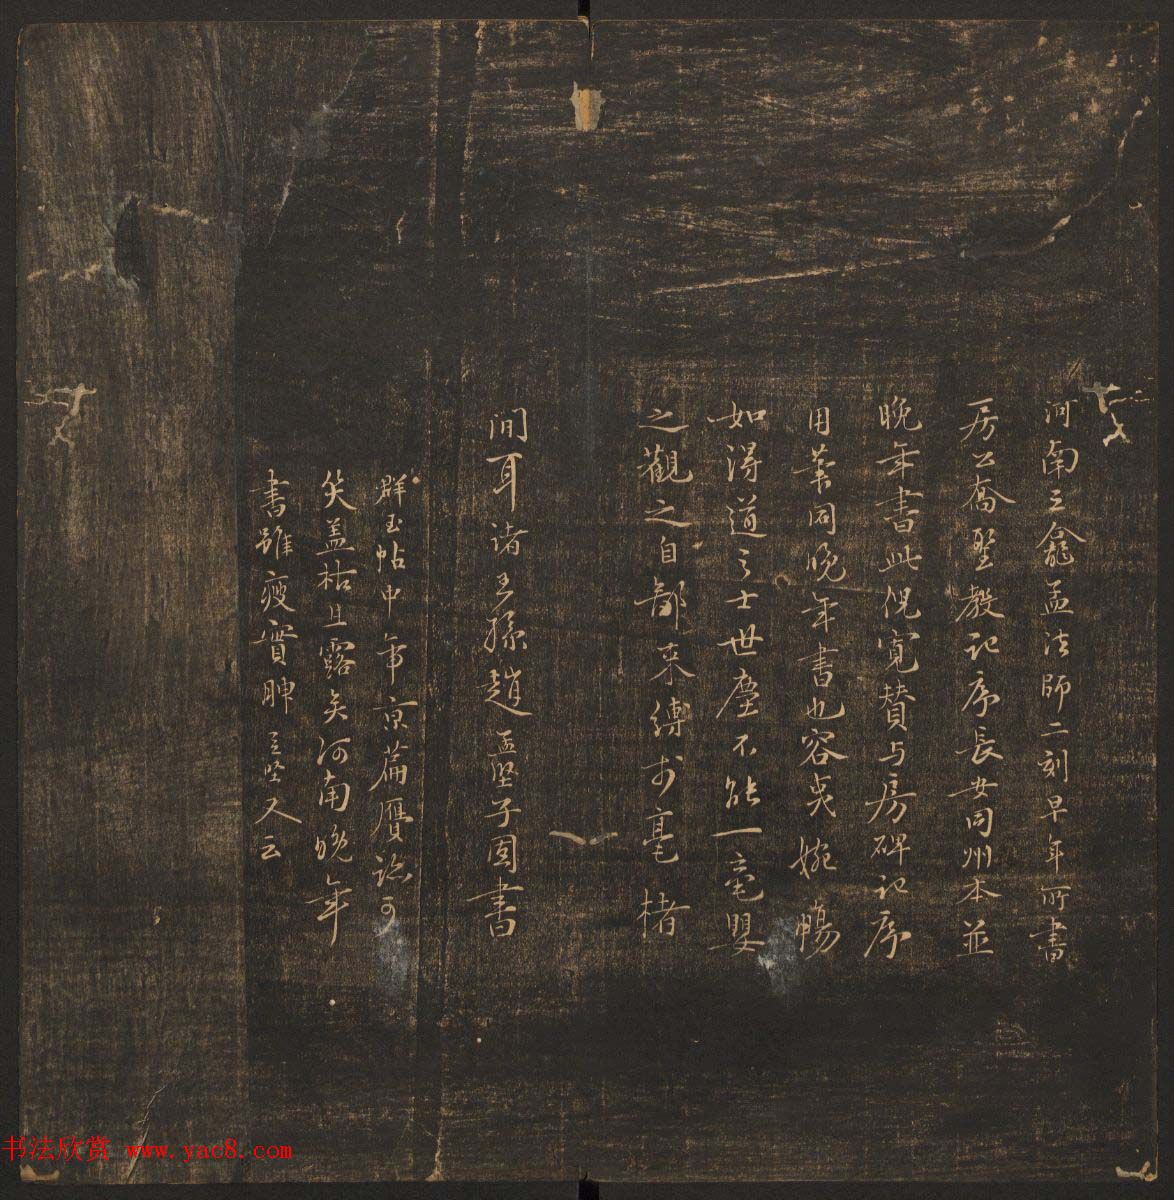 河南三龕孟法師二刻早年所書
房公喬聖教記序長安同州本並
晚年書此倪寬賛与房碑記序
用筆同晚年書也容夷婉暢
如得道之士世塵不能一毫嬰
之觀之自鄙束縛於毫楮
間耳諸王孫趙孟堅子固書
群玉帖中帝京篇贗跡可
笑盖枯且露矣河南晚年
書雖瘦實腴孟堅又云
书法欣赏 www.yac8.com